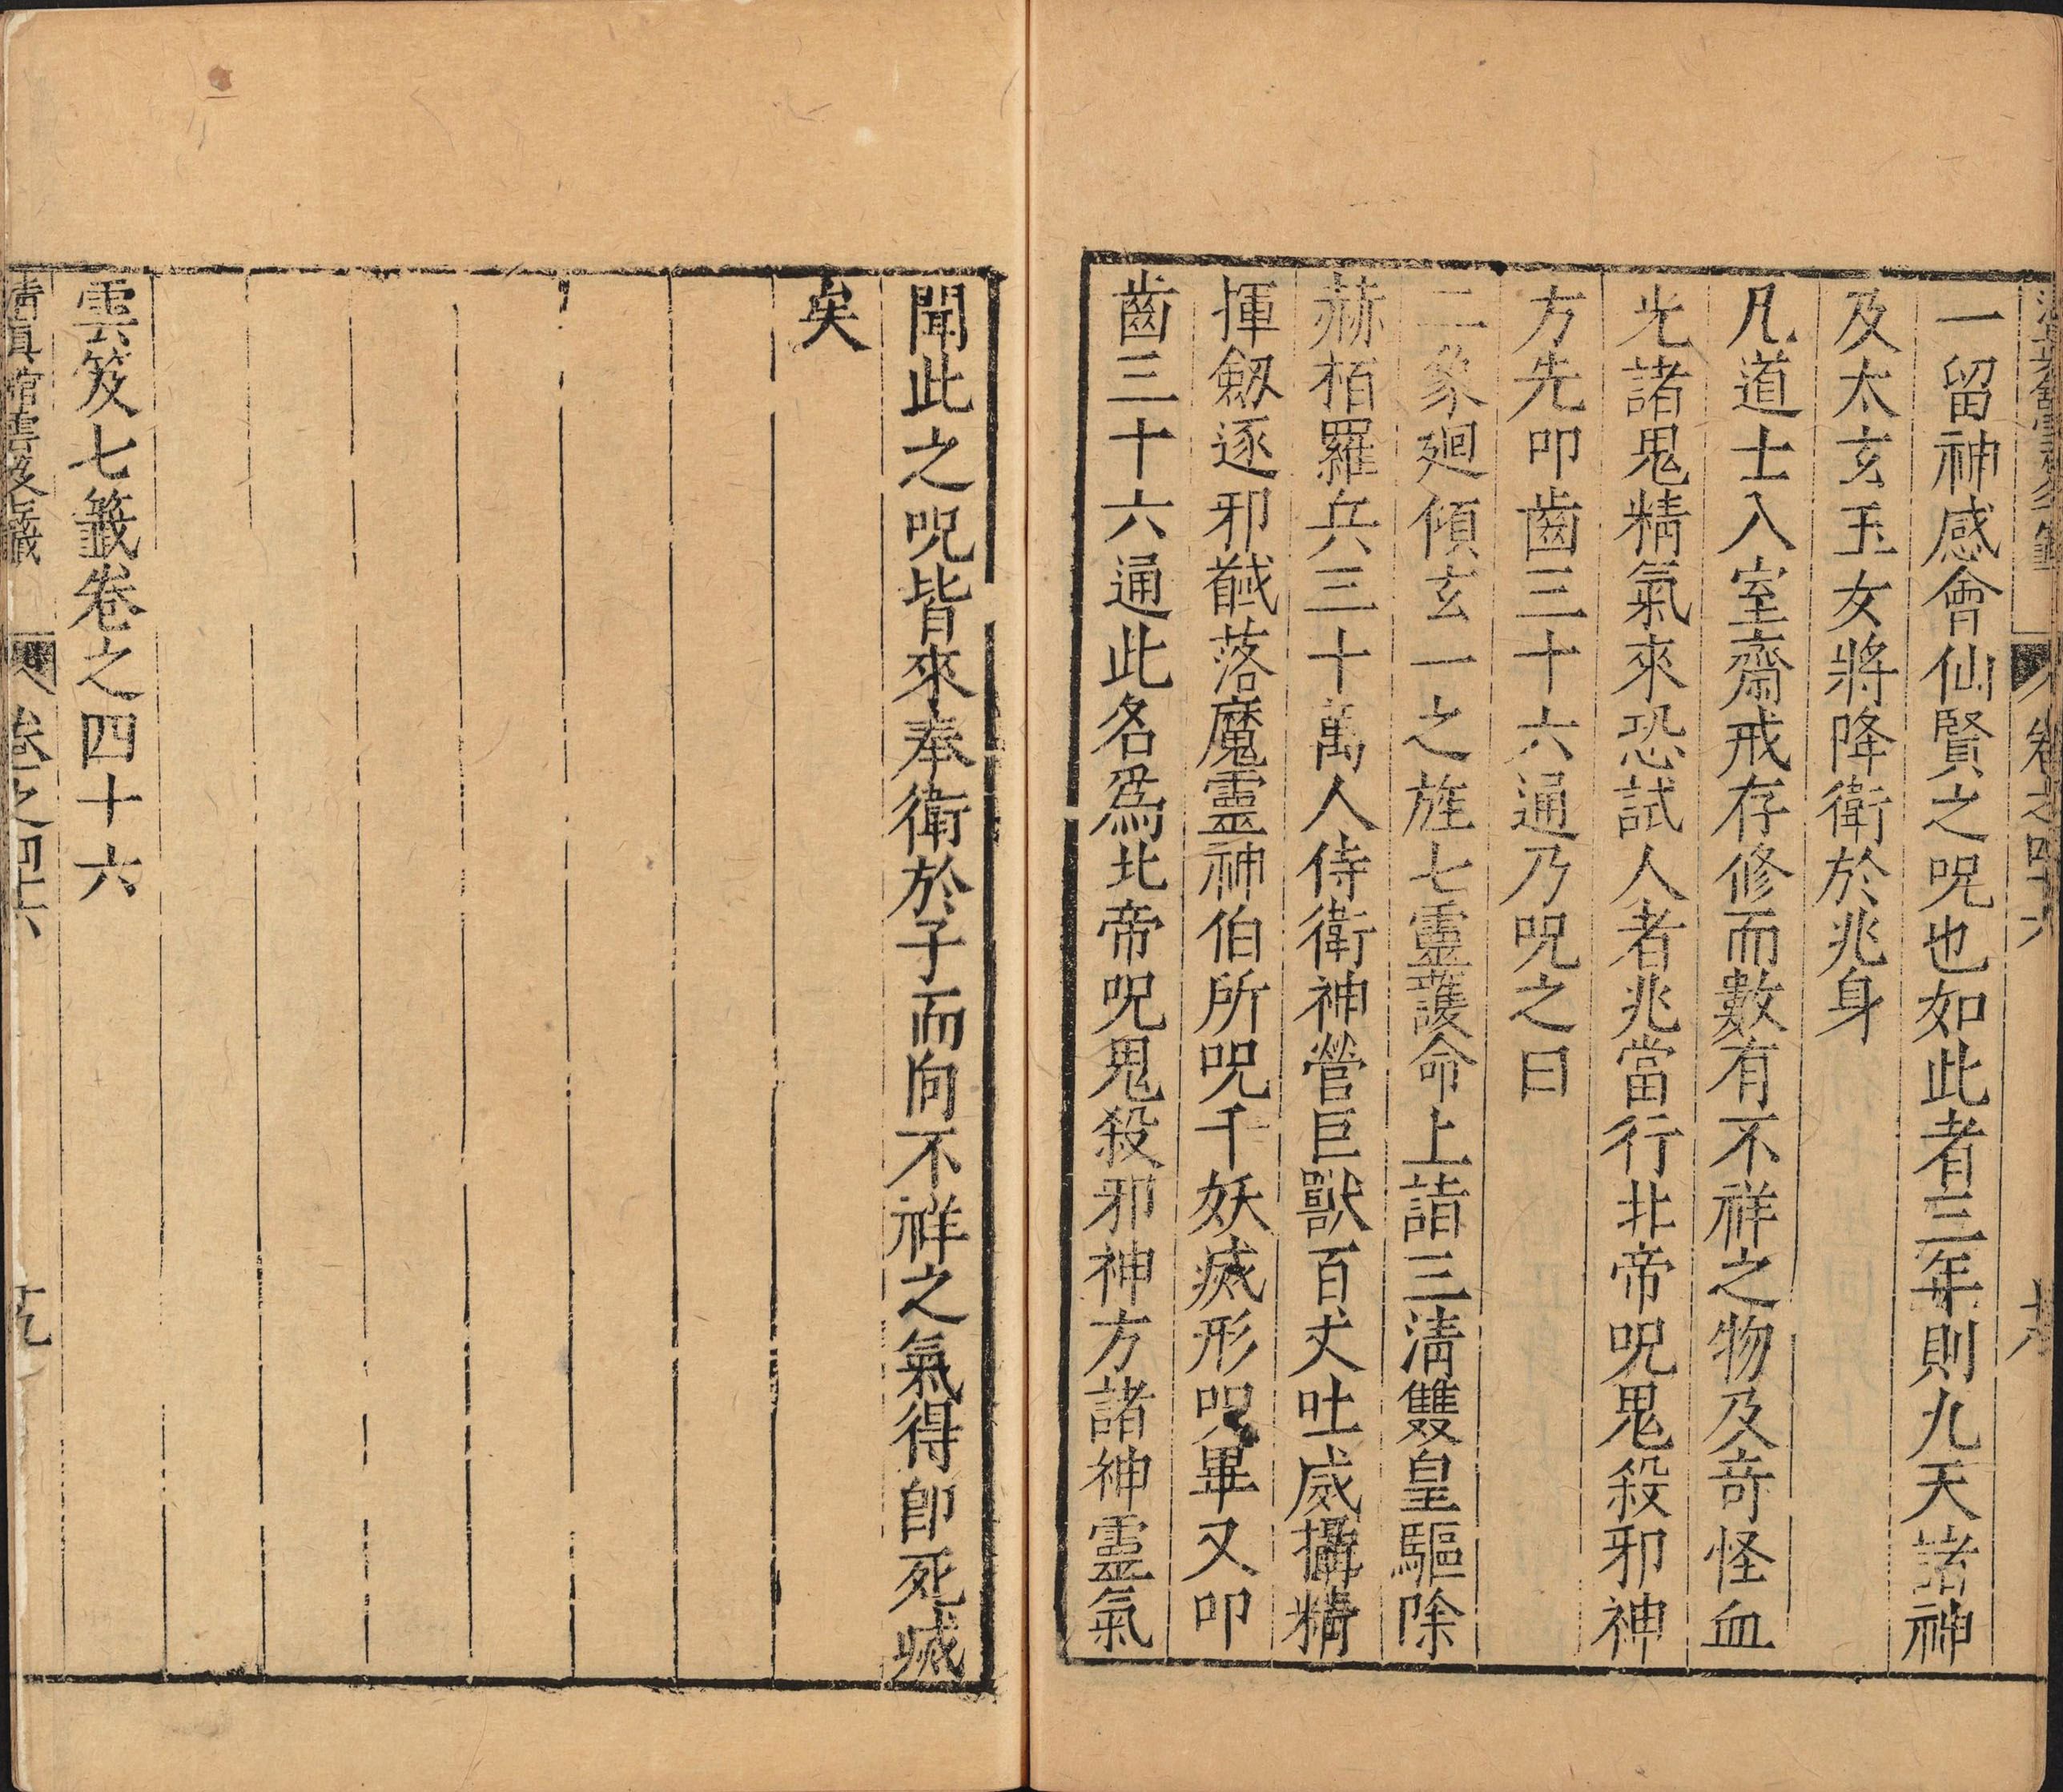 清真館雲笈七籤 卷之四十六
一留神感會仙賢之呪也如此者三年則九天諸神
及太玄玉女將降衛於兆身
凡道士入室齋戒存修而數有不祥之物及奇怪血
光諸鬼精氣來恐試人者兆當行北帝呪鬼殺邪神
方先叩齒三十六通乃呪之曰
二象廻傾玄一之旌七靈護命上詣三淸雙皇驅除
赫栢羅兵三十萬人侍衛神營巨獸百丈吐威攝精
揮劒逐邪馘落魔靈神伯所呪千妖㓕形呪畢又叩
齒三十六通此名爲北帝呪鬼殺邪神方諸神靈氣
聞此之呪皆來奉衛於子而向不祥之氣得卽死㓕
矣
雲笈七籖卷之四十六
清真館雲笈七籤 卷之四十六